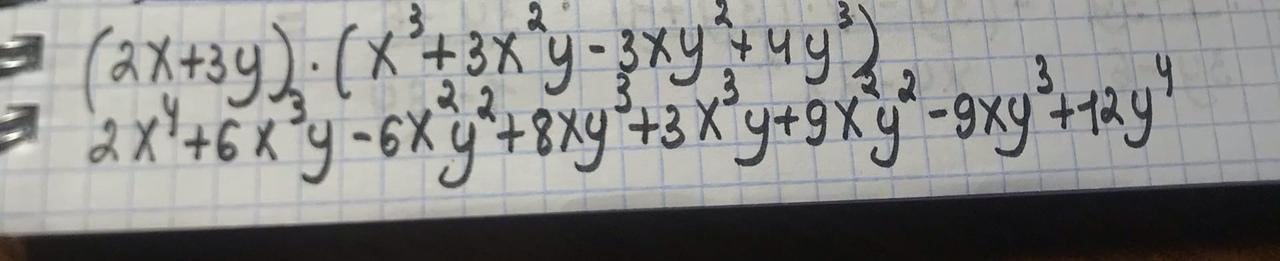 (2x+3y)·(x³+3x²y-3xy²+4y³)
2x⁴+6x³y-6x²y²+8xy³+3x³y+9x²y²-9xy³+12y⁴